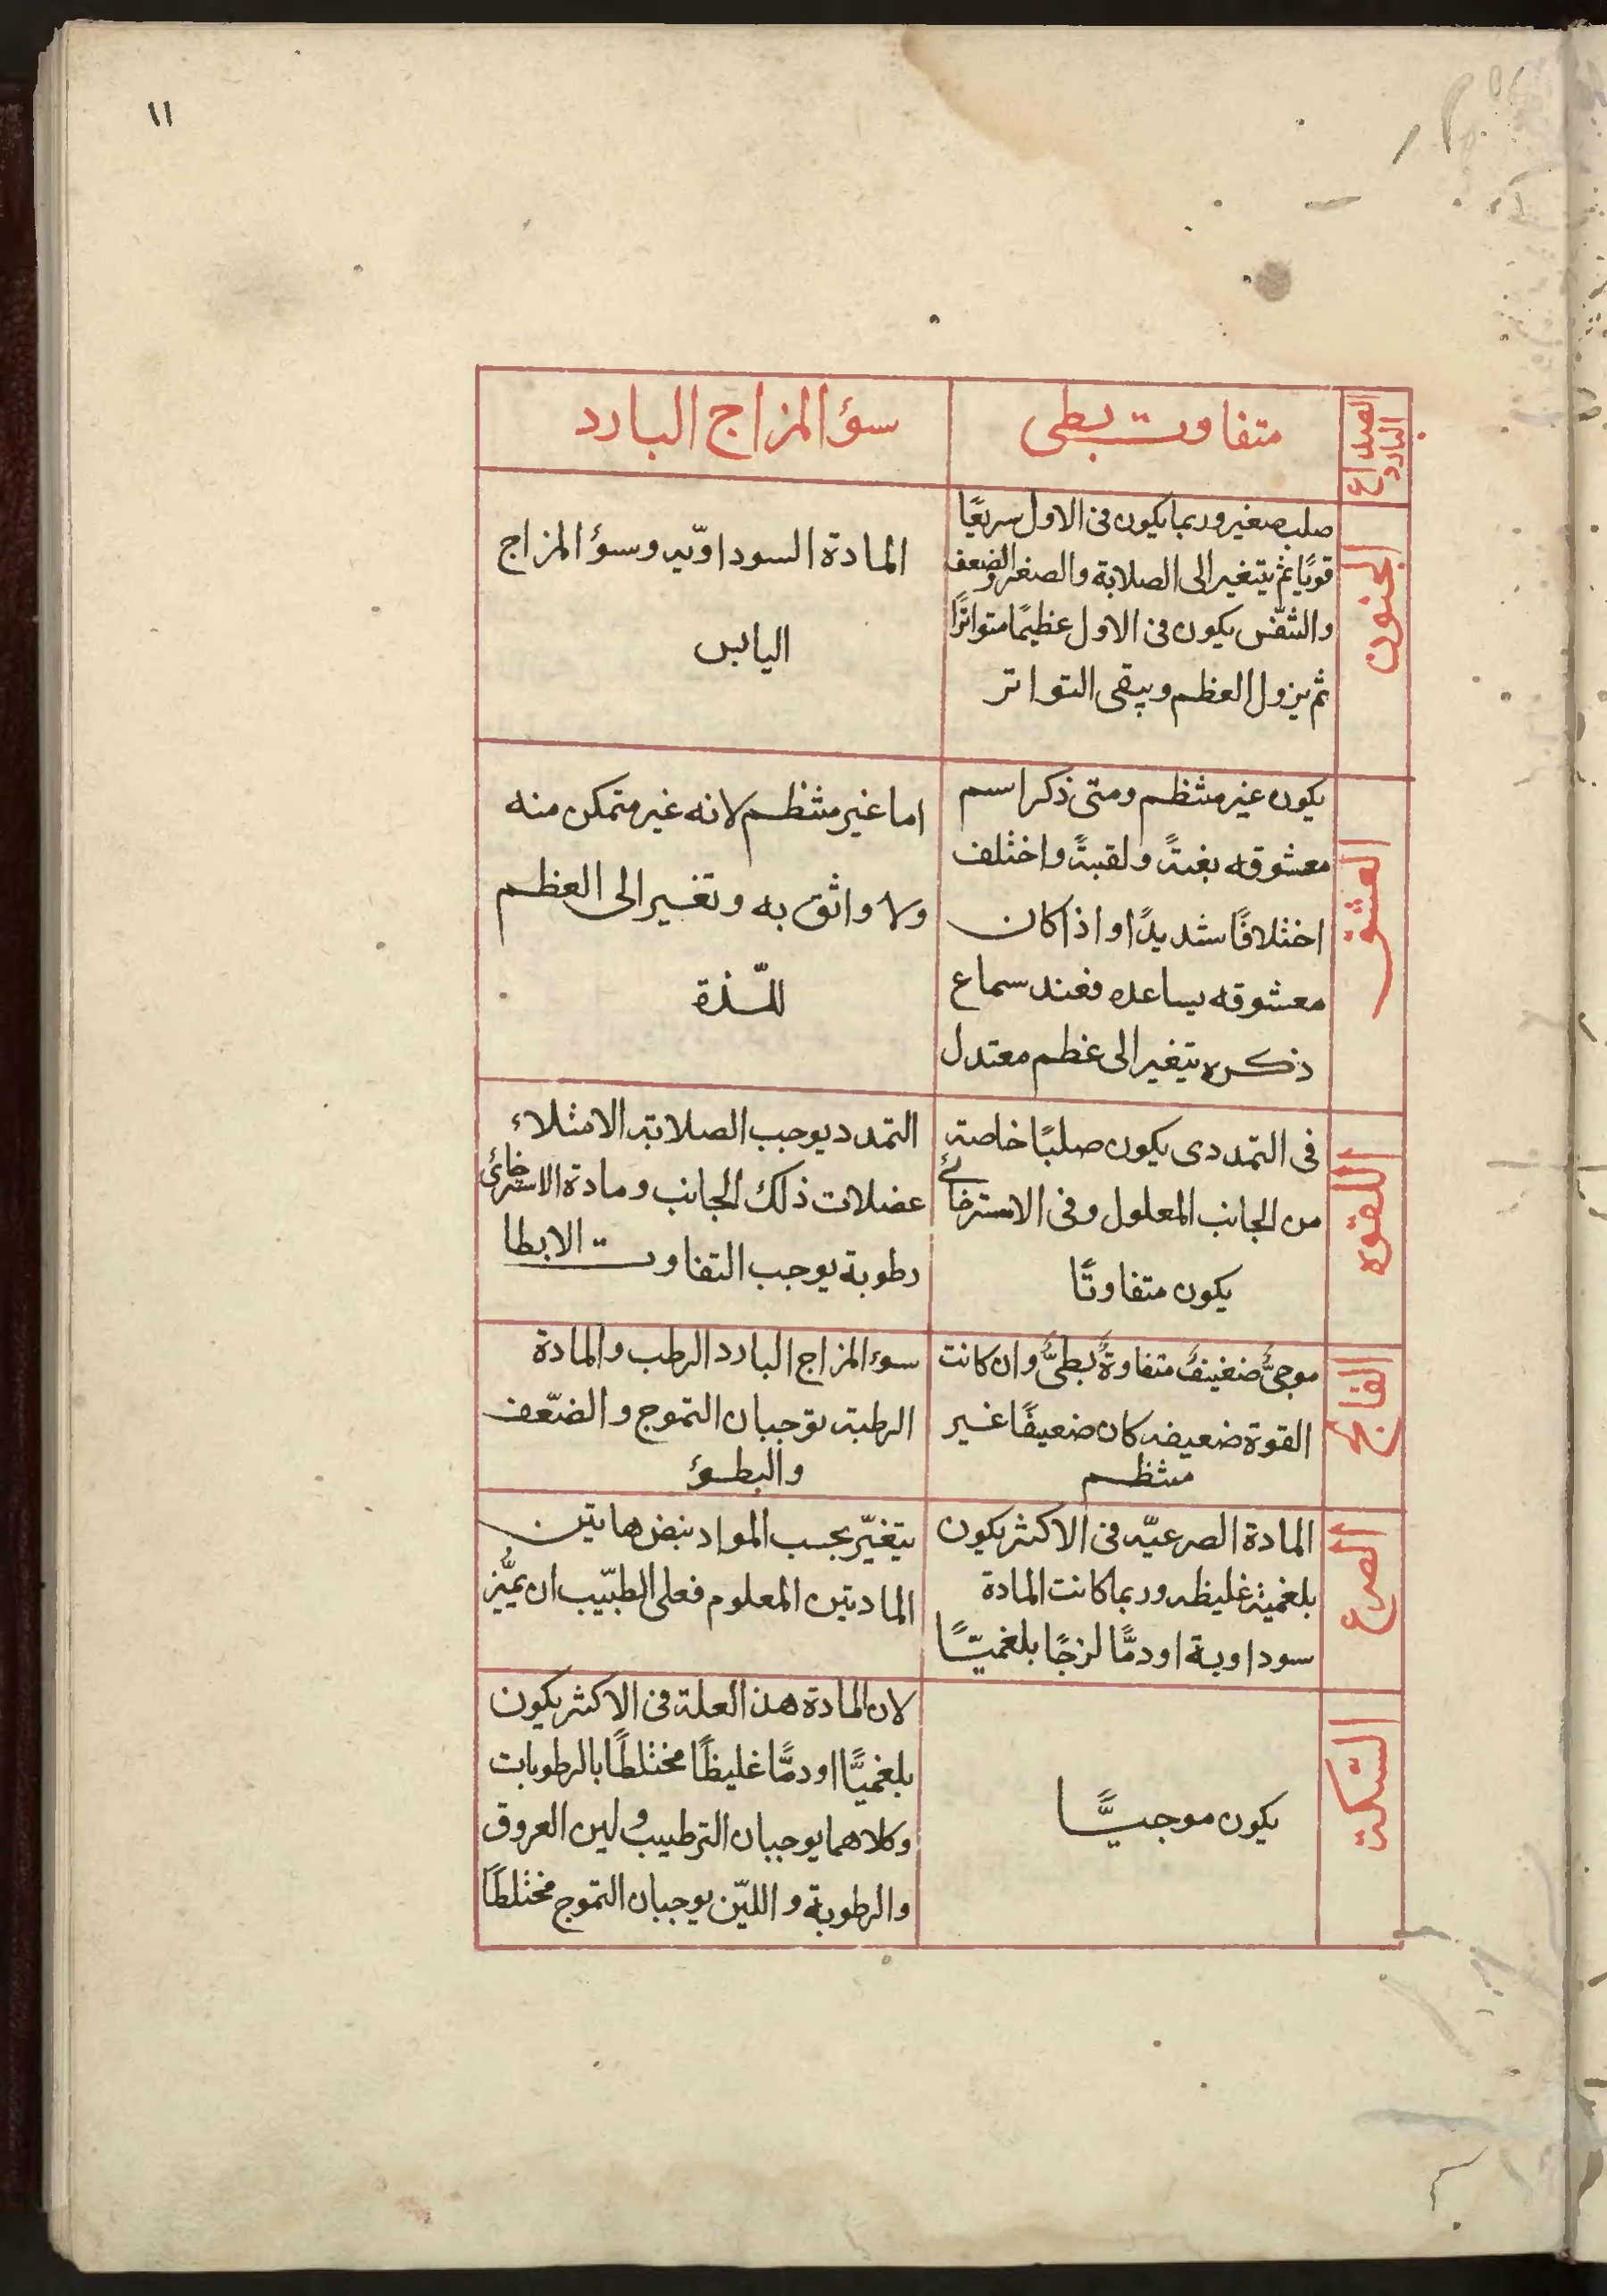 ١١
الصداع
البارد
متفاوت بطى
سؤ المزاج البارد
الجنون
صلب صغير وربما يكون فى الاول سريعًا
قويًا ثم يتغير الى الصلابة والصغر والضعف
والتنفّس يكون فى الاول عظيمًا متواترًا
ثم يزول العظم ويبقى التواتر
المادة السوداوّيه وسؤ المزاج
اليابس
العشق
يكون غير منتظم ومتى ذكر اسم
معشوقه بغتةً ولقبةً واختلف
اختلافًا شديدًا واذا كان
معشوقه يساعده فعند سماع
ذكره يتغير الى عظم معتدل
اما غير منتظم لانه غير متمكن منه
ولا واثق به وتغير الى العظم
للّذة
اللقوه
فى التمددى يكون صلبًا خاصته
من الجانب المعلول وفى الاسترخائے
يكون متفاوتًا
التمدد يوجب الصلابته الامتلاء
عضلات ذلك الجانب ومادة الاسترخائى
رطوبة يوجب التفاوت الابطا
الفالج
موجىٌّ ضعيفٌ متفاوةٌ بطىٌّ وان كانت
القوة ضعيفه كان ضعيفًا غير
منتظم
سوء المزاج البارد الرطب والمادة
الرطبته توجبان التموج والضّعف
والبطؤ
الصرع
المادة الصرعيّه فى الاكثر يكون
بلغميته غليظه وربما كانت المادة
سوداوية او دمًّا لزجًا بلغميّتًا
يتغيّر بحسب المواد نبض هاتين
المادتين المعلوم فعلى الطبّيب ان يميُّز
السّكته
يكون موجيًّا
لان المادة هذ العلة فى الاكثر يكون
بلغميًّا او دمًّا غليظًا مختلطًا بالرطوبات
وكلاهما يوجبان الترطيب ولين العروق
والرطوبة واللّين يوجبان التموج مختلطًا